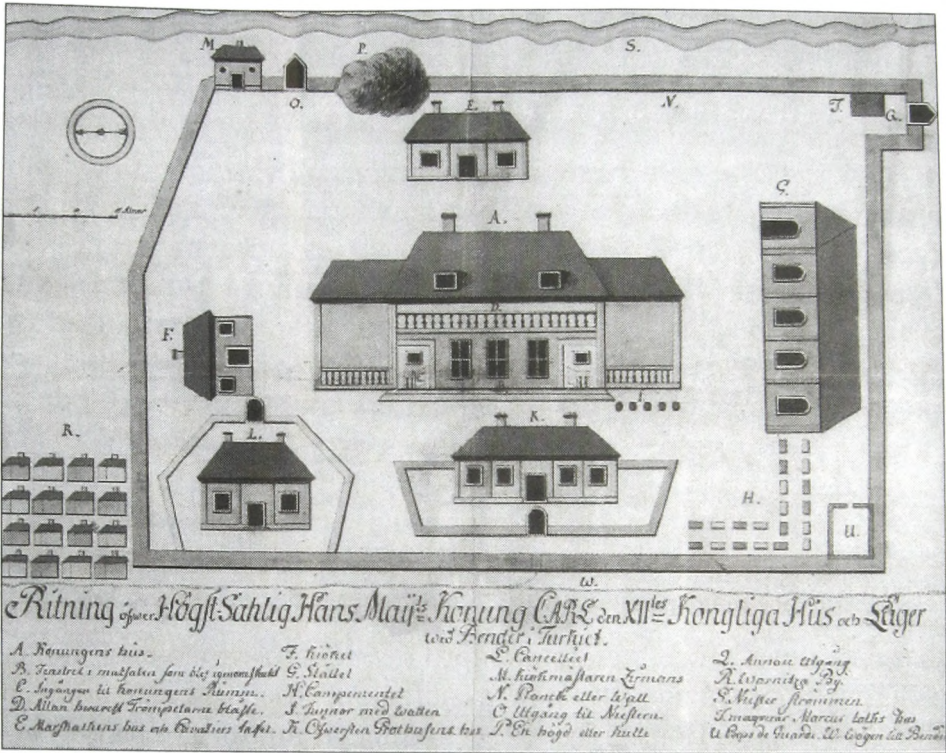 M.
O.
P.
S.
E.
N.
T.
G.
A.
D.
F.
L.
K.
H.
R.
U.
W.
Ritning öfwer Högst Sahlig Hans Maij:ts Konung CARL den XII:tes Kongliga Hus och Läger
wed Bender i Turkiet.
A. Konungens hus.
B. Fenstret i matsalen som blef
C. Ingången til konungens Rumm.
D. Altan hwarest Trompetarne blåste.
E. Marskalkens hus och Cavaliers taffel.
F. Kiöket
G. Stallet
H. Campementet
I. Tunnor med watten
K. Öfwersten Grothusens hus
L. Cancelliet
M. kiökmästaren
N. Planck eller Wall
O. Utgång til Niestern.
P. En högd eller kulle
Q. Annan Utgång
R. Warnitza By.
S. Niester strömmen
T. Marcus hus
U. Corps de Guarde. W. Wägen till Bender